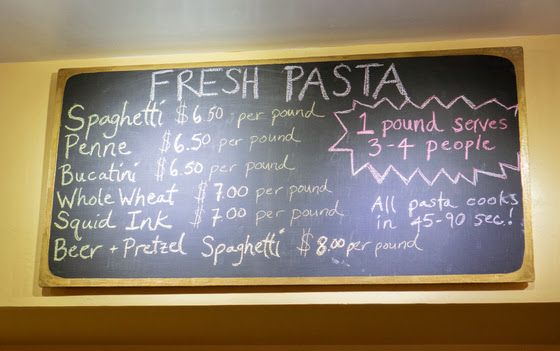 FRESH PASTA
Spaghetti $6.50 per pound
Penne $6.50 per pound
Bucatini $6.50 per pound
Whole Wheat $7.00 per pound
Squid Ink $7.00 per pound
Beer + Pretzel Spaghetti $8.00 per pound
1 pound serves
3-4 people
All pasta cooks
in 45-90 sec.!